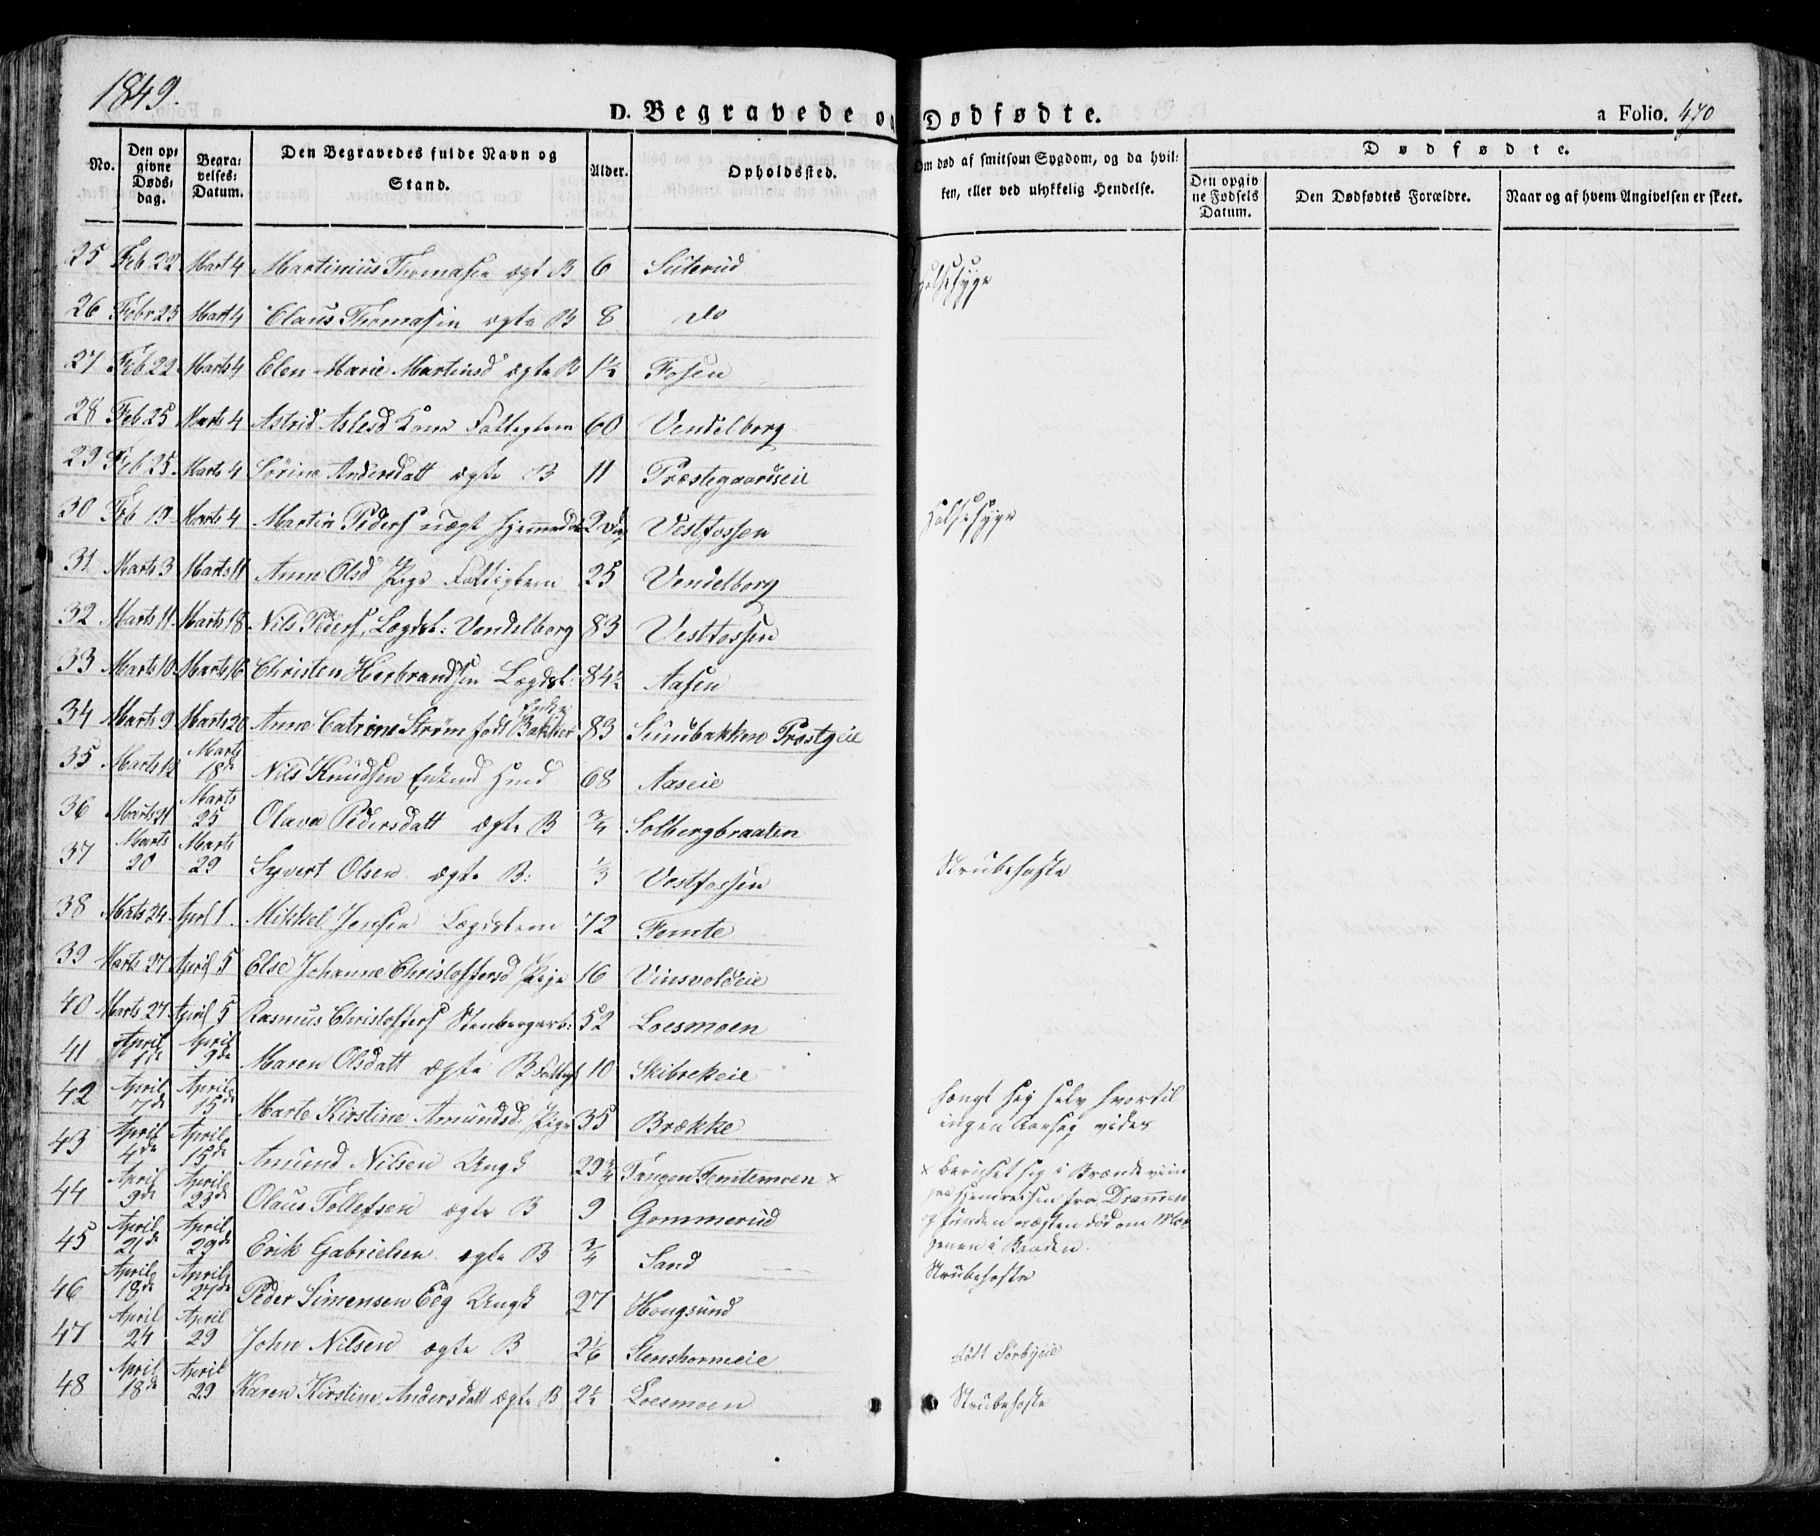 1849.
D. Begravede og Dødfødte.
a Folio. 470
No.
Den op-
givne
Døds-
dag.
Begra-
velses-
Datum.
Den Begravedes fulde Navn og
Stand.
Alder.
Opholdssted.
Om død af smitsom Sygdom, og da hvil-
ken, eller ved ulykkelig Hendelse.
Dødfødte.
Den opgiv-
ne Fødsels
Datum.
Den Dødfødtes Forældre.
Naar og af hvem Angivelsen er skeet.
25 Feb 22 Mart 4 Martinius Thomasen ægt B 6 Halssyge
26 Febr 23 Mart 4 Claus Thomasen ægte B 8 do
27 Feb 22 Marts 4 Elen Marie Martinsd ægte B 1½ Fosen
28 Feb 25 Marts 4 Astrid Aslesd Kone Fattiglem 60 Vendelborg
29 Feb 25 Marts 4 Sørine Andersdatt ægte B 11 Præstegaardseie
30 Feb 19 Marts 4 Martin Peders uægt hjemmedøbt 2 Vestfossen Halssyge
31 Marts 3 Marts 11 Anne Olsd Pige Fattiglem 25 Vendelborg
32 Marts 11 Marts 18 Nils Peders. Lægdsl: Vendelborg 83 Vestfossen
33 Marts 10 Marts 16 Christen Herbrandsen Lægdsl: 84½ Aasen
34 Marts 9 Marts 20 Anne Catrine Strøm født Bakker Enke 83 Sundbakken Præstgeie
35 Marts 12 Marts 18de Nils Knudsen Enkemd Husmd 68 Aaseie
36 Marts 21 Marts 25 Olava Pedersdatt ægte B ¾ Solbergbraaten
37 Marts 20 Marts 29 Syvert Olsen ægte B: ⅓ Vestfossen Strubehoste
38 Marts 24 April 1. Mikkel Jensen Lægdslem 72 Fomte
39 Marts 27 April 5 Else Johanne Christoffersd Pige 16 Vinsvoldeie
40 Marts 27 April 5 Rasmus Christoffers Stenbergarb: 52 Loesmoen
41 April 1de April 9de Maren Olsdatt ægte B Fattigl 10 Skibrekeie
42 April 7de April 15de Marte Kirstine Amundsd: Pige 35 Brække
hængt sig selv hvortil
ingen Aarsag vides
43 April 4de April 15de Amund Nilsen Ungk 29¾ Tangen Femtemoen ×
× beruset sig i Brændeviin
paa hjemreisen fra Drammen
og funden næsten død om Mor-
genen i Bræden.
44 April 9de April 23de Olaus Tollefsen ægte B 9 Gommerud
45 April 21de April 29de Erik Gabrielsen ægte B ¾ Sand Strubehoste
46 April 18de April 27de Peder Simensen Eeg Ungk 27 Hougsund
47 April 24 April 29 John Nilsen ægte B 2⅙ Stenshorneie født Sørbyeie
48 April 18de April 29 Karen Kirstine Andersdatt ægte B 2½ Loesmoen Strubehoste